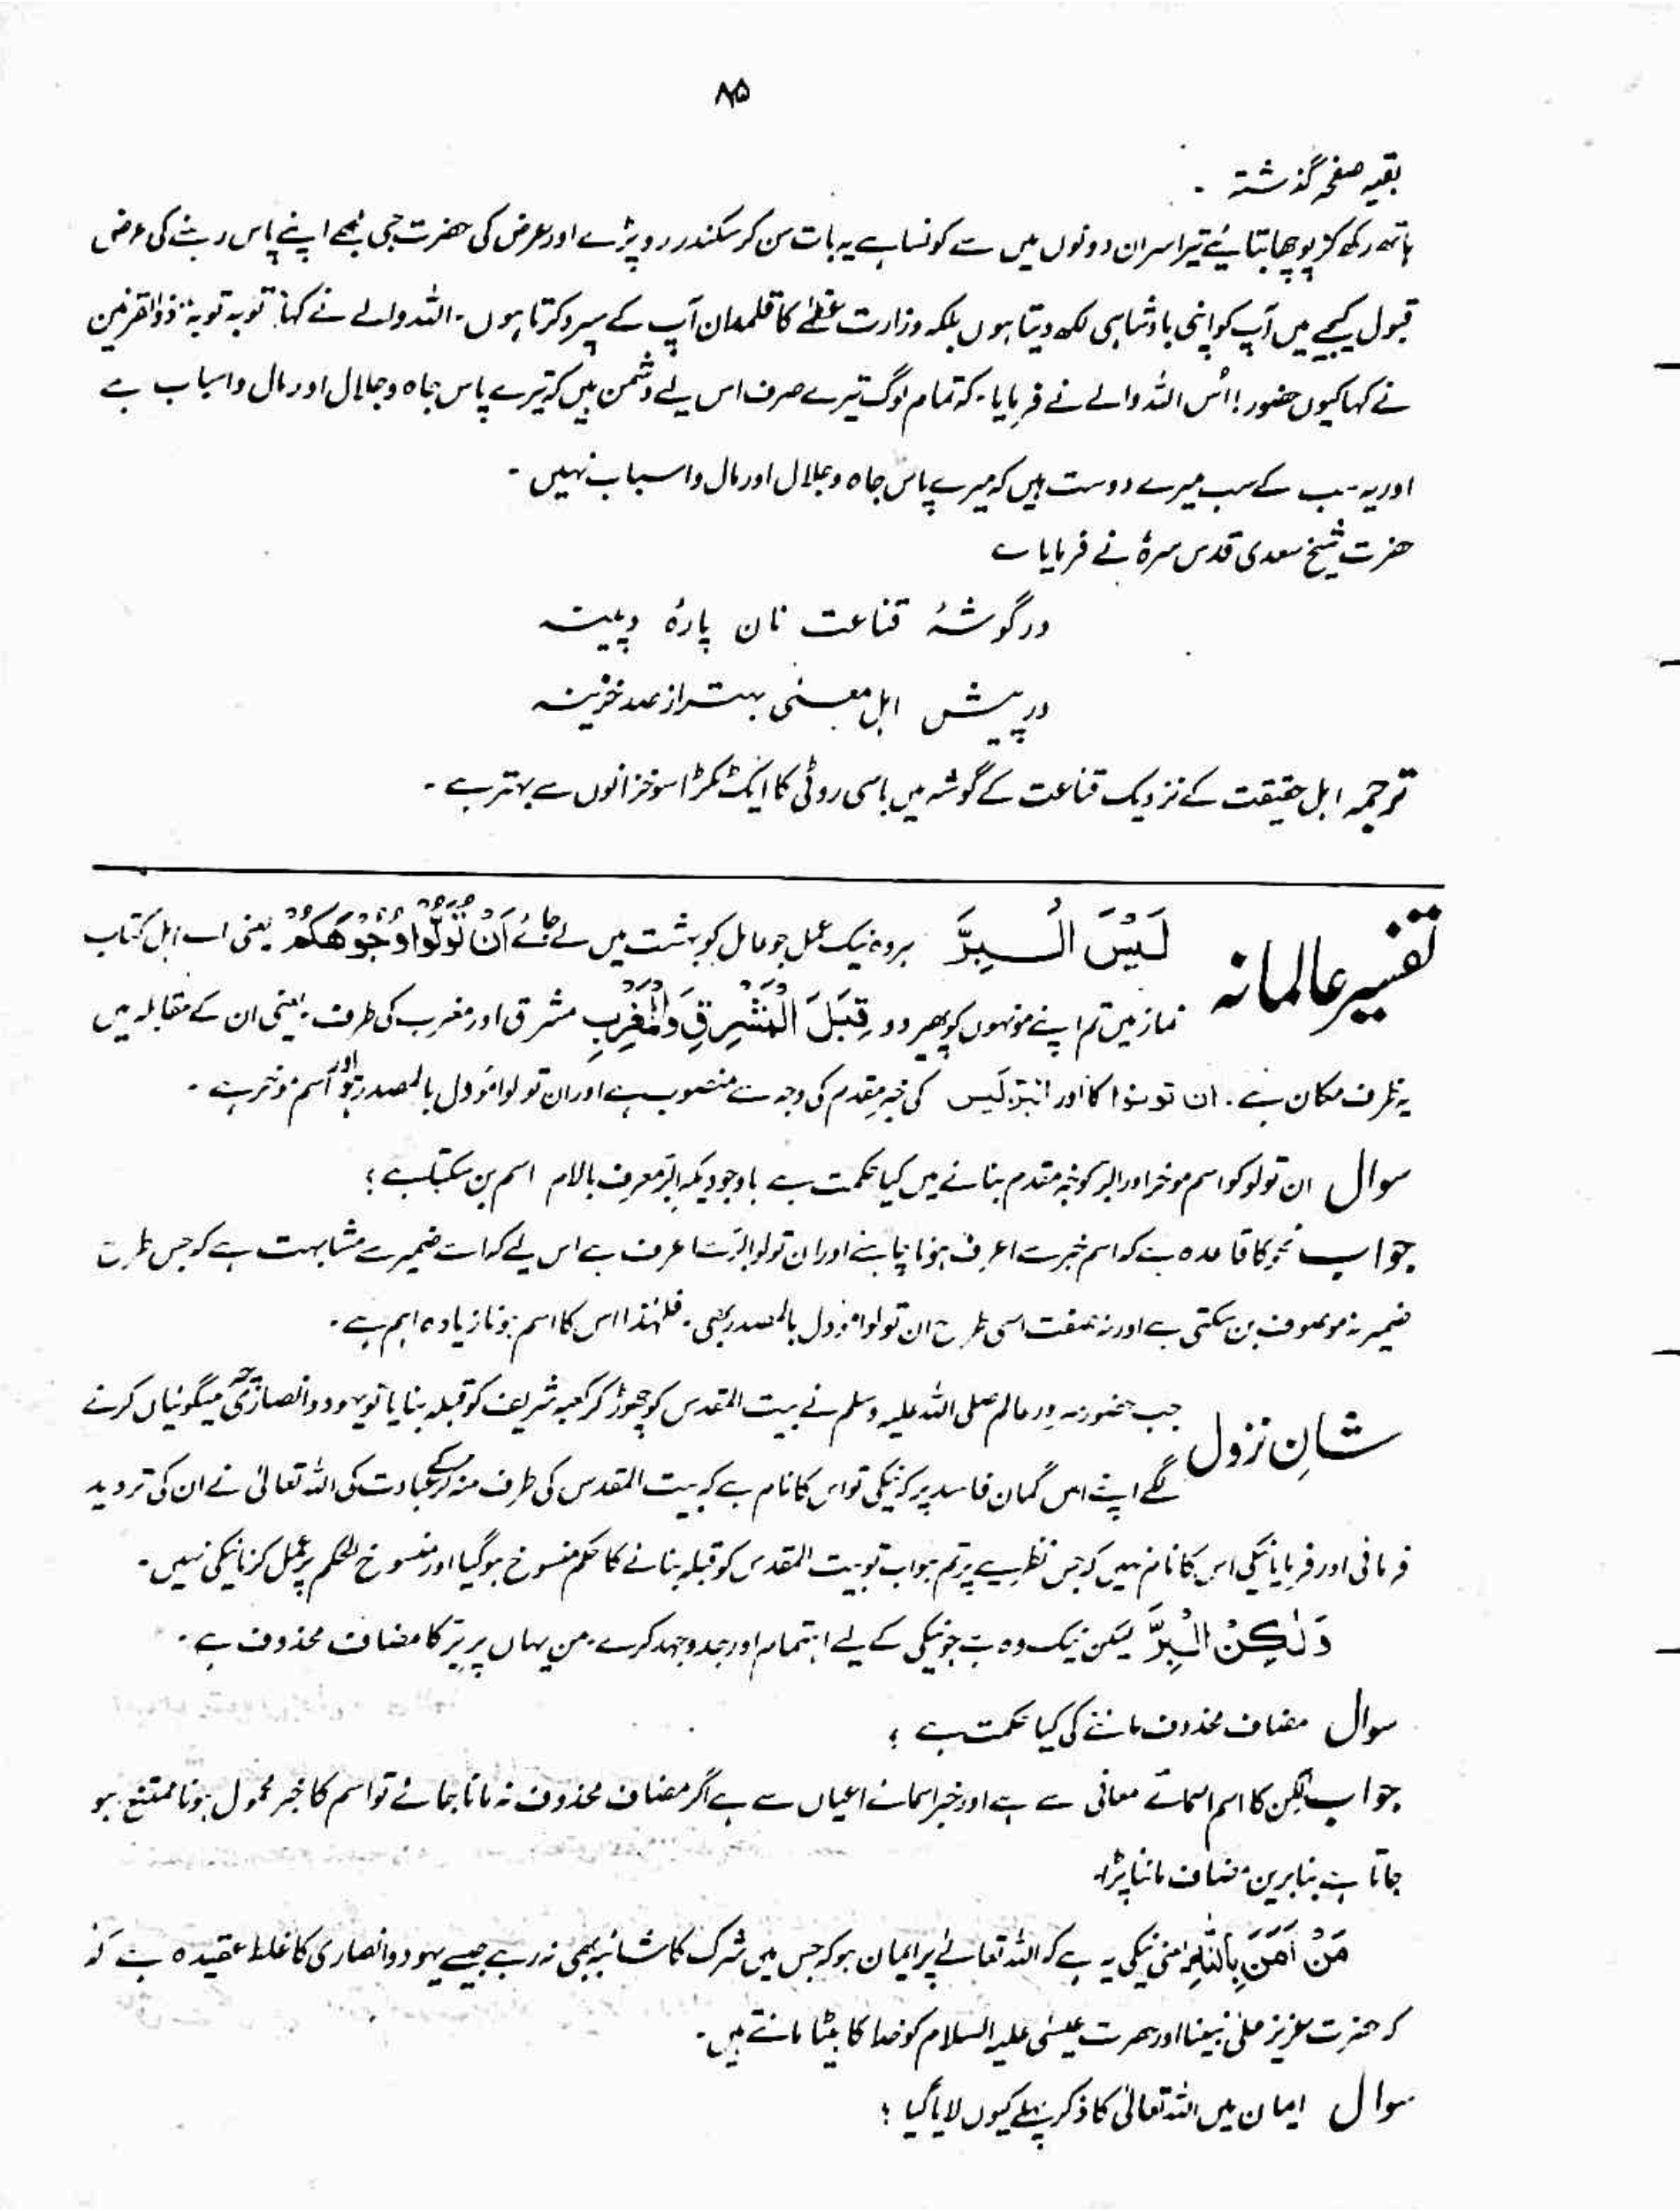 ۸۵
بقیہ صفحہ گذشتہ ۔
ہاتھ رکھ کر پوچھا بتائیے تیرا سر ان دونوں میں سے کونسا ہے یہ بات سن کر سکندر رو پڑے اور عرض کی حضرت جی مجھے اپنے پاس رہنے کی عرض
قبول کیجیے میں آپ کو اپنی بادشاہی لکھ دیتا ہوں بلکہ وزارت عظمٰے کا قلمدان آپ کے سپرد کرتا ہوں۔ اللہ والے نے کہا: توبہ توبہ: ذوالقرنین
نے کہا کیوں حضور! اُس اللہ والے نے فرمایا۔ کہ تمام لوگ تیرے صرف اس لیے دشمن ہیں کہ تیرے پاس جاہ و جلال اور مال و اسباب ہے
اور یہ سب کے سب میرے دوست ہیں کہ میرے پاس جاہ و جلال اور مال و اسباب نہیں ۔
حضرت شیخ سعدی قدس سرہٗ نے فرمایا ؎
در گوشۂ قناعت نان پارۂ و پینہ
در پیش اہل معنی بہتر از صد خزینہ
ترجمہ اہل حقیقت کے نزدیک قناعت کے گوشہ میں باسی روٹی کا ایک ٹکڑا سو خزانوں سے بہتر ہے ۔
تفسیر عالمانہ لَيْسَ الْبِرَّ ہر وہ نیک عمل جو عامل کو بہشت میں لے جائے اَنْ تُوَلُّوْا وُجُوْهَكُمْ یعنی اے اہل کتاب
نماز میں تم اپنے مونہوں کو پھیر دو قِبَلَ الْمَشْرِقِ وَالْمَغْرِبِ مشرق اور مغرب کی طرف۔ یعنی ان کے مقابلہ میں
یہ ظرف مکان ہے۔ ان تولوا کا اور البر، لیس کی خبر مقدم کی وجہ سے منصوب ہے اور ان تولوا مؤول بالمصدر ہو اور اسم مؤخر ہے ۔
سوال ان تولو کو اسم موخر اور البر کو خبر مقدم بنانے میں کیا حکمت ہے باوجودیکہ البر معرف بالام اسم بن سکتا ہے ؟
جواب نحو کا قاعدہ ہے کہ اسم خبر سے اعرف ہونا چاہئے اور ان تولوا البر سے اعرف ہے اس لیے کہ اسے ضمیر سے مشابہت ہے کہ جس طرح
ضمیر نہ موصوف بن سکتی ہے اور نہ صفت اسی طرح ان تولوا مؤول بالمصدر بھی۔ فلہٰذا اس کا اسم ہونا زیادہ اہم ہے ۔
شانِ نزول جب حضور سرور عالم صلی اللہ علیہ وسلم نے بیت المقدس کو چھوڑ کر کعبہ شریف کو قبلہ بنایا تو یہود و انصاریٰ چہ میگوئیاں کرنے
لگے اپنے اس گمان فاسد پر کہ نیکی تو اس کا نام ہے کہ بیت المقدس کی طرف منہ کر کے عبادت کی اللہ تعالیٰ نے ان کی تردید
فرمائی اور فرمایا نیکی اس کا نام نہیں کہ جس نظریے پر تم ہو اب تو بیت المقدس کو قبلہ بنانے کا حکم منسوخ ہو گیا اور منسوخ الحکم پر عمل کرنا نیکی نہیں ۔
وَلٰكِنَّ الْبِرَّ لیکن نیک وہ ہے جو نیکی کے لیے اہتمام اور جد و جہد کرے۔ من یہاں پر بِرّ کا مضاف محذوف ہے ۔
سوال مضاف محذوف ماننے کی کیا حکمت ہے ؟
جواب لکن کا اسم اسمائے معانی سے ہے اور خبر اسمائے اعیان سے ہے اگر مضاف محذوف نہ مانا جائے تو اسم کا خبر محمول ہونا ممتنع ہو
جاتا ہے بنابریں مضاف ماننا پڑا۔
مَنْ اٰمَنَ بِاللّٰهِ یعنی نیکی یہ ہے کہ اللہ تعالےٰ پر ایمان ہو کہ جس میں شرک کا شائبہ بھی نہ رہے جیسے یہود و انصاری کا غلط عقیدہ ہے کہ
کہ حضرت عزیز علیٰ نبینا اور حضرت عیسٰی علیہ السلام کو خدا کا بیٹا مانتے ہیں ۔
سوال ایمان میں اللہ تعالیٰ کا ذکر پہلے کیوں لایا گیا ؟